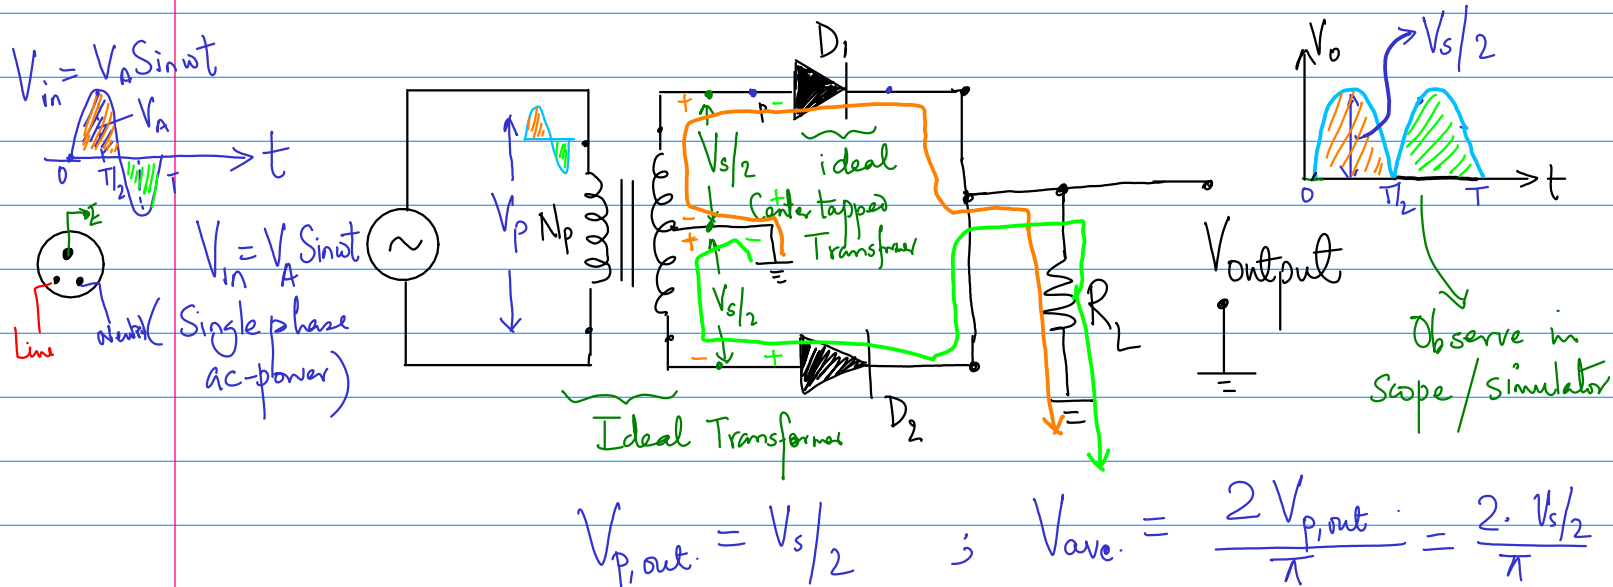 V_in = V_A Sinωt
V_A
0 T/2 T
t
E
Line
Neutral
V_in = V_A Sinωt
Single phase
ac-power)
V_p
N_p
D_1
+ P -
V_s/2
ideal
- +
Center tapped
+ -
Transformer
V_s/2
- +
D_2
Ideal Transformer
R_L
V_output
V_o
V_s/2
0 T/2 T t
Observe in
scope / simulator
V_p,out. = V_s/2 ; V_ave. = 2 V_p,out. / π = 2. V_s/2 / π